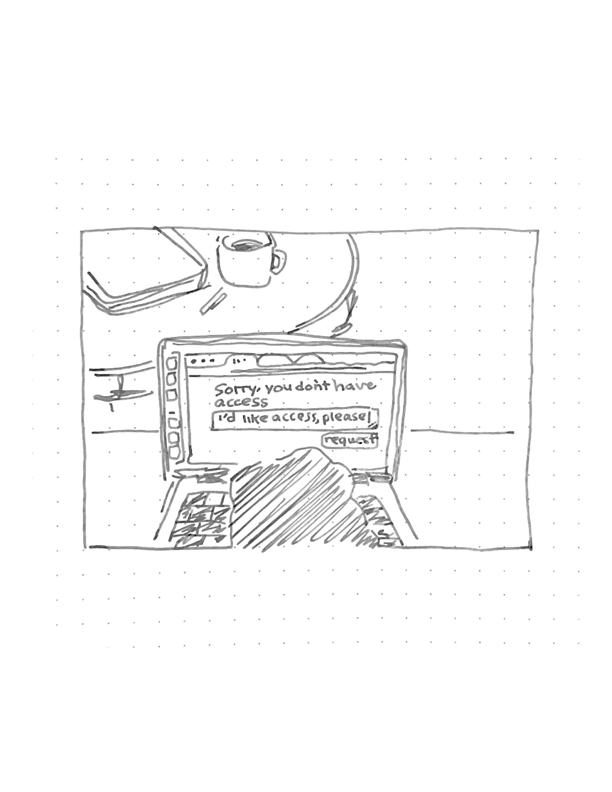 Sorry, you don't have
access
I'd like access, please
request